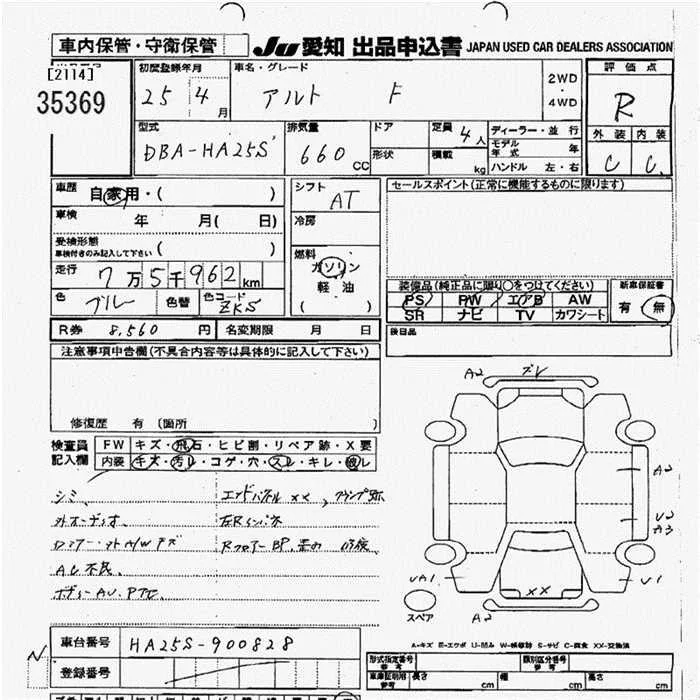 車内保管・守衛保管
JU 愛知 出品申込書 JAPAN USED CAR DEALERS ASSOCIATION
[2114]
35369
初度登録年月
25 4 月
車名・グレード
アルト F
2WD
・
4WD
評価点
R
型式
DBA-HA25S
排気量
660 CC
ドア
形状
定員 4 人
積載 kg
ディーラー・並行
モデル年式 年
ハンドル 左・右
外装 内装
C C
車歴 自家用・( )
車検 年 月( 日)
受検形態
車検付きのみ記入して下さい ( )
走行 7万5千962km
色 ブルー 色替 色コード ZKS
シフト AT
冷房
燃料
ガソリン
軽油
( )
セールスポイント(正常に機能するものに限ります)
装備品(純正品に限り○をつけてください)
PS PW エアB AW
SR ナビ TV カワシート
新車保証書
有 無
後日品
R券 8,560 円 名変期限 月 日
注意事項申告欄(不具合内容等は具体的に記入して下さい)
修復歴 有 (箇所 )
検査員記入欄
FW キズ・飛石・ヒビ割・リペア跡・X要
内装 キズ・汚レ・コゲ・穴・スレ・キレ・破レ
シミ
エンドパネルXX
外オーディオ
AC不良
A2
ズレ
A2
U2
A3
UA1
U1
XX
スペア
A2
A-キズ E-エクボ U-凹み W-補修跡 S-サビ C-腐食 XX-交換済
車台番号 HA25S-900828
登録番号
N
形式指定番号
参考
類別区分番号
参考
車庫証明用
参考
長さ cm 幅 cm 高さ cm